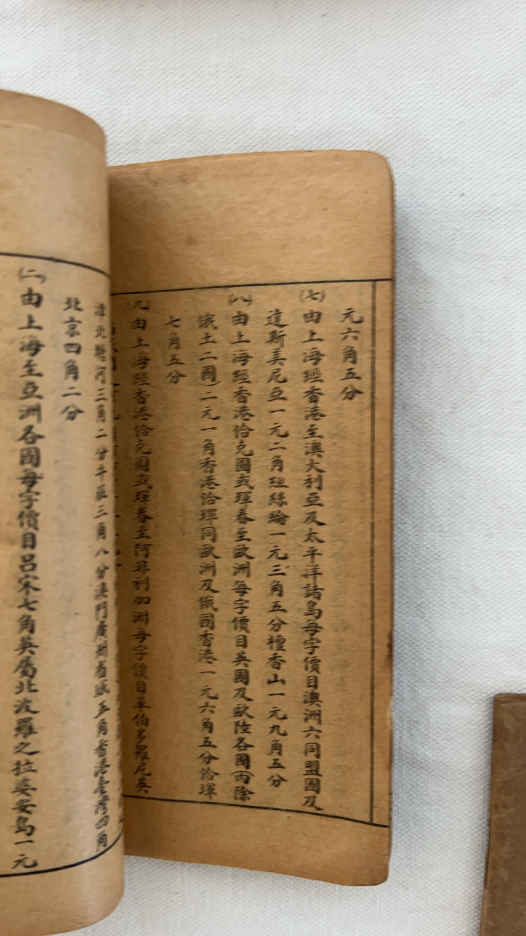 元六角五分
(七)由上海經香港至澳大利亞及太平洋諸島每字價目澳洲六同盟國及
達斯美尼亞一元二角紐絲綸一元三角五分檀香山一元九角五分
(八)由上海經香港恰克圖或琿春至歐洲每字價目英國及歐陸各國內除
俄土二國二元一角香港恰琿同歐洲及俄國香港一元六角五分恰琿
七角五分
九由上海經香港恰克圖或琿春至阿非利加洲每字價目
津北塘河三角二分牛莊三角八分澳門廣州省城五角香港臺灣四角
北京四角二分
(二)由上海至亞洲各國每字價目呂宋七角英屬北波羅之拉婆安島一元